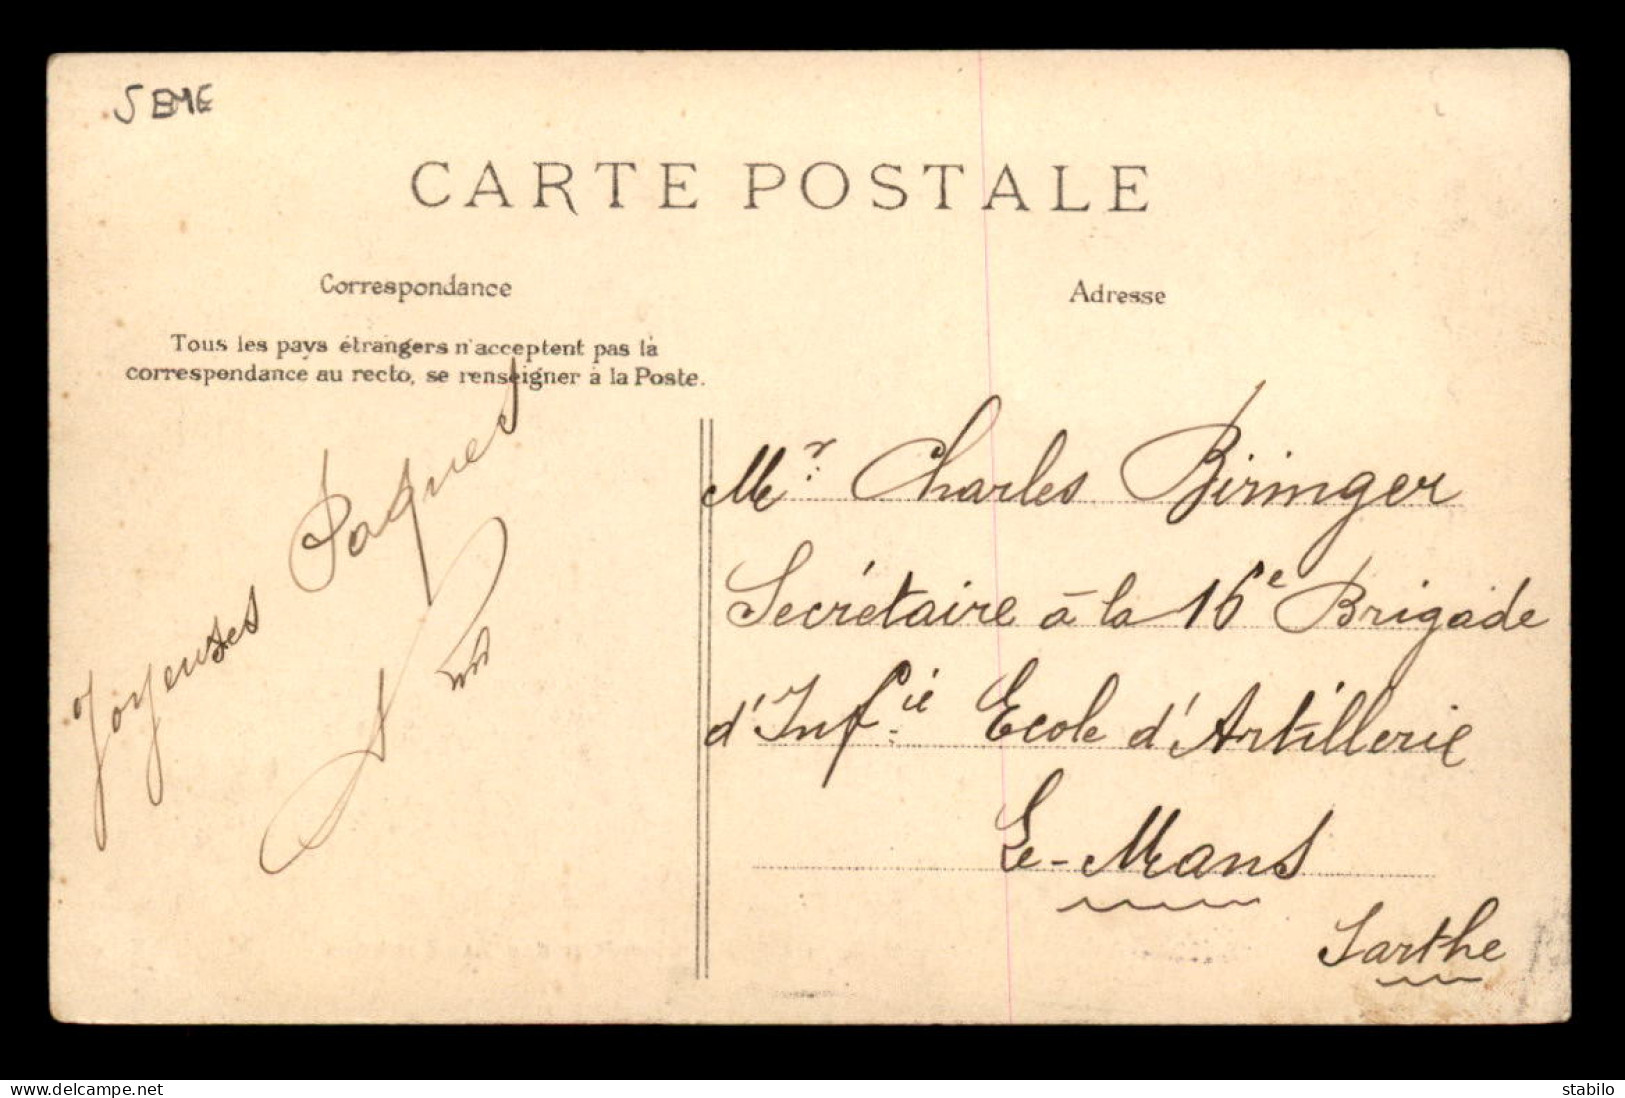 5 EME
CARTE POSTALE
Correspondance
Tous les pays étrangers n'acceptent pas la
correspondance au recto, se renseigner à la Poste.
Joyeuses Paques
Adresse
Mr Charles Biringer
Secrétaire à la 16e Brigade
d'Infie Ecole d'Artillerie
Le-Mans
Sarthe
www.delcampe.net
stabilo